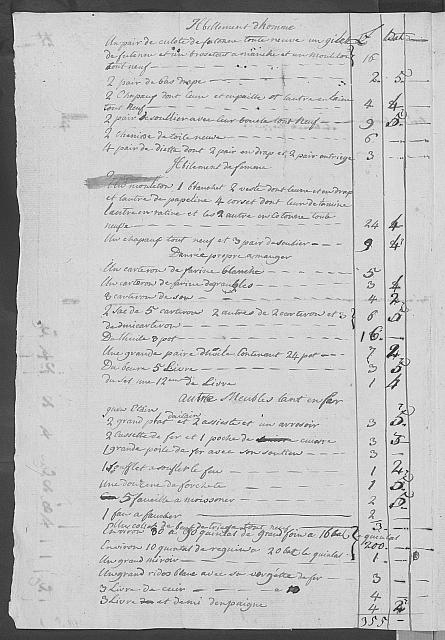 Abillement d'homme
Un pair de culote de futenne toute neuve un gilet
de futenne et un a manche et un moulton
tout neuf — 16
2 pair de bas drape — 2 5
2 Chapauf dont leun et en paille et lautre en laine
tout neuf — 4 4
2 pair de soullier avec leur boucle tout neuf — 9 5
2 chemise de toile neuve — 6
4 pair de diette dont 2 pair en drap et 2 pair en triege 3
Abilement de femme
Un moulton 1 blanchet 2 veste dont leune et en drap
et lautre de papeline 4 corset dont leun de
lautre en ratine et les 2 autre en cotonne toute
neufve — 24 4
Un chapauf tout neuf et 3 pair de soulier — 9 4
Danrée propre a manger
Un carteron de farine blanche — 5
Un carteron de farine de — 3 4
8 carteron de son — 4 2
2 sac de 5 carteron 2 autres de 2 carteron et 3
de demi carteron — 6 5
De lhuile 8 pot — 16
Une grande paire contenent 24 pot — 7 4
Du beure 5 Livre — 3 5
du sel une 12en de Livre — 1 4
autre Meubles tant en fair
2 grand plat et 2 assiete et un arrosoir — 3 5
d'aitain
2 Cassette de fer et 1 poche de cuivre 3 5
1 grande poile de fer avec son soutien — 3
1 soufflet a soufler le feu — 1 2
Une douzene de forchete — 1 5
5 faucille a moissoner — 2 5
1 fau a faucher — 2
tout neuf — 3
Environ 80 a 90 quintal de grand foin a 16 bat le quintal
Environ 10 quintal de regain a 20 bat le quintal 200
Un grand miroir — 1
Un grand ridos blave avec sa vergette de fer — 3
3 Livre de cuir — 4
3 Livre et demi 4 2
355